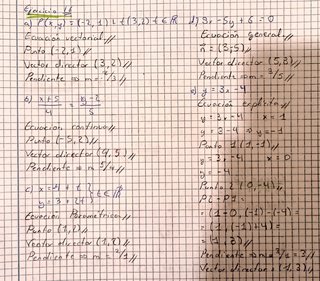 Ejercicio 11
a) P(x,y) = (-2, 1) + t (3,2) t ∈ R
Ecuación vectorial //
Punto (-2,1) //
Vector director (3,2) //
Pendiente => m = 2/3 //
b) x+5/4 = y-2/5
Ecuacion continua //
Punto (-5,2) //
Vector director (4,5) //
Pendiente => m 5/4 //
c) x = 1 + t } t ∈ R
y = 3 + 2t
Ecuación Parametrica //
Vector director (1,2) //
Pendiente => m = 2/1 //
d) 3x - 5y + 6 = 0
Ecuación general //
Vector director (5,3) //
Pendiente => m = 3/5
e) y = 3x - 4
Ecuación explicita //
y = 3x - 4 x = 1
y = 3 - 4 => y = -1
Punto 1 (1,-1) //
y = 3x - 4 x = 0
y = -4
Punto 2 (0,-4) //
P2 - P1 =
= (1-0, (-1) - (-4) =
= (1, (-1) + 4) =
= (1, 3) //
Pendiente => m = 3/1 = 3 //
Vector director = (1, 3) //